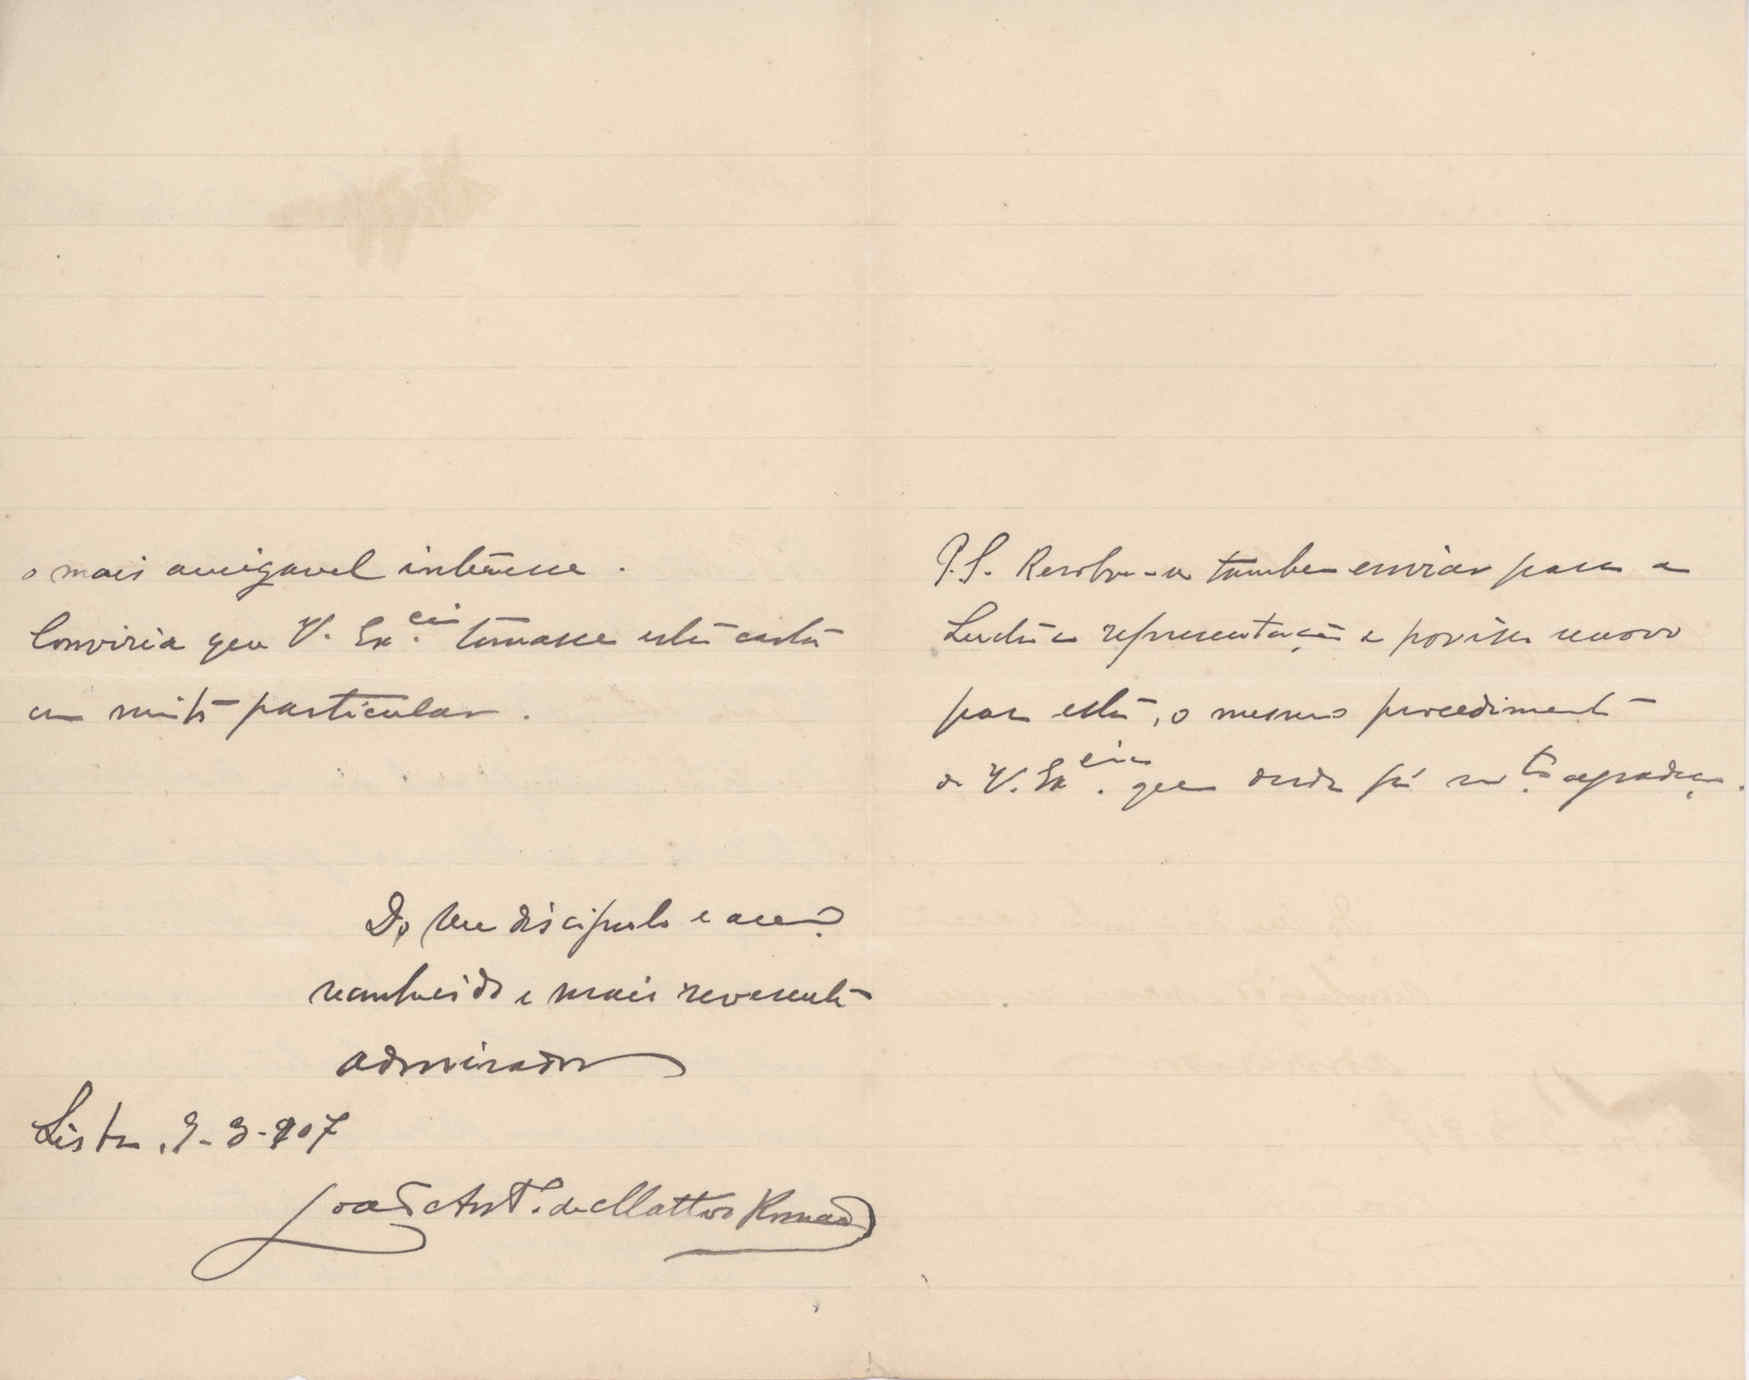 o mais amigavel interesse.
Conviria que V. Ex.cia tomasse esta carta
em muito particular.
Do seu discipulo e am.º
reconhecido e mais reverente
admirador
Lisboa, 9-3-907
João Ant.º de Mattos Romão
P.S. Resolveu-se tambem enviar para a
Lucta a representação e por isso renovo
para esta, o mesmo procedimento
de V. Ex.cia que desde já m.to agradeço.